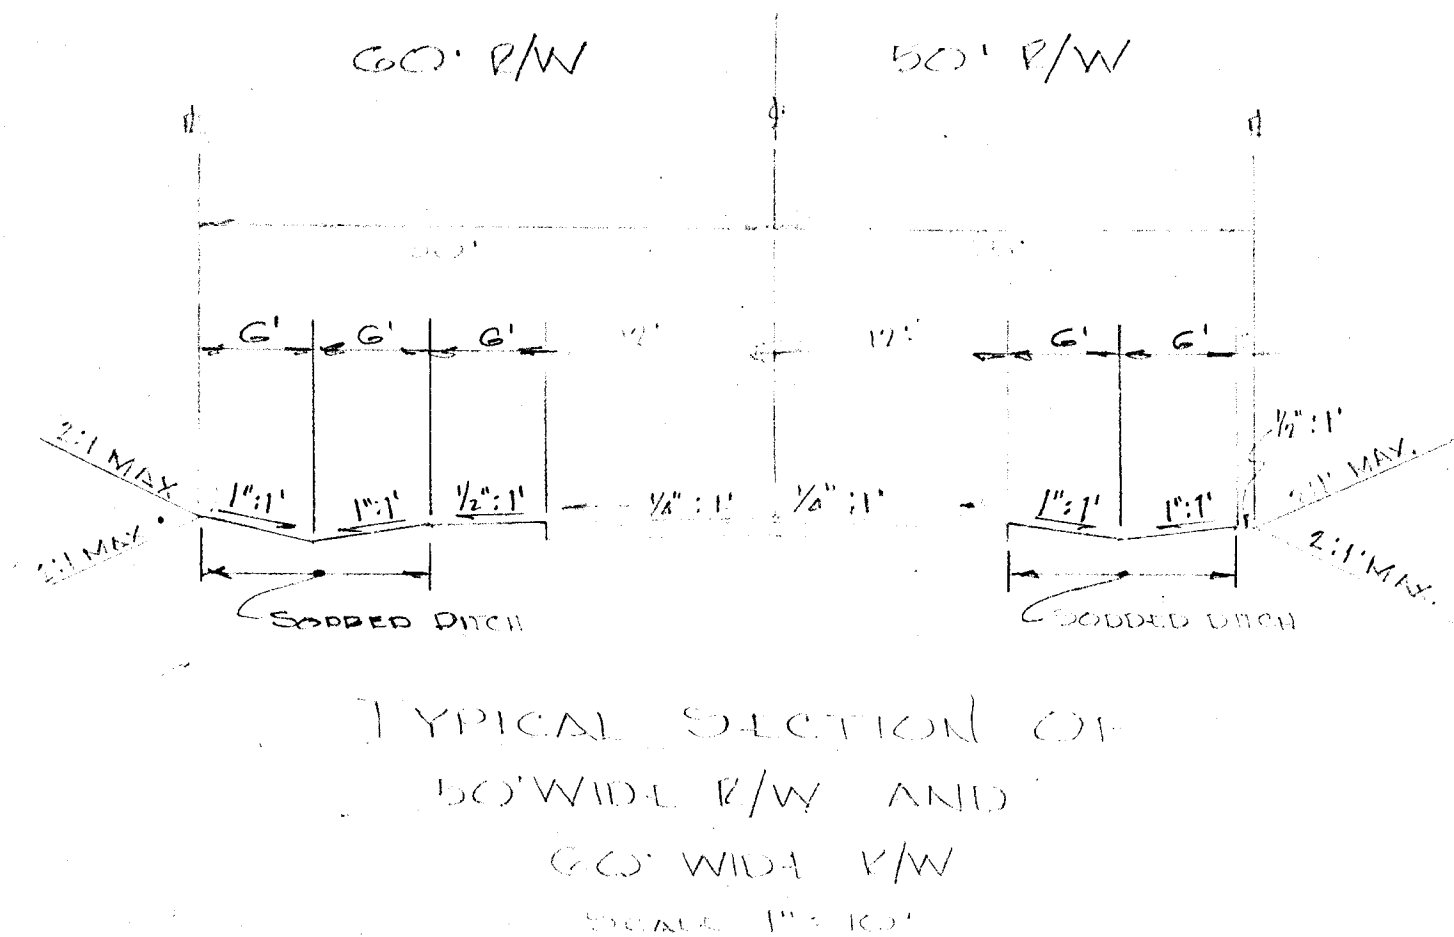 60' R/W 50' R/W
30'
6' 6' 6' 12' 12' 6' 6'
½":1'
2:1 MAX 2:1' MAX.
1":1' 1":1' ½":1' ¼":1' ¼":1' 1":1' 1":1'
2:1 MAX 2:1' MAX.
SODDED DITCH SODDED DITCH
TYPICAL SECTION OF
50' WIDE R/W AND
60' WIDE R/W
SCALE 1" = 10'